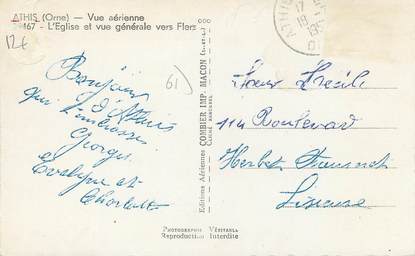 ATHIS (Orne) — Vue aérienne
467 - L'Eglise et vue générale vers Flers
12€
61)
Bonjour
d'Athis
qui t'embrasse
Georges
Evelyne et
Charlotte
Editions Aériennes COMBIER IMP. MACON
ATHIS
17
19
114 Boulevard
Herbet Fournet
Lisieux
PHOTOGRAPHIE VÉRITABLE
Reproduction Interdite